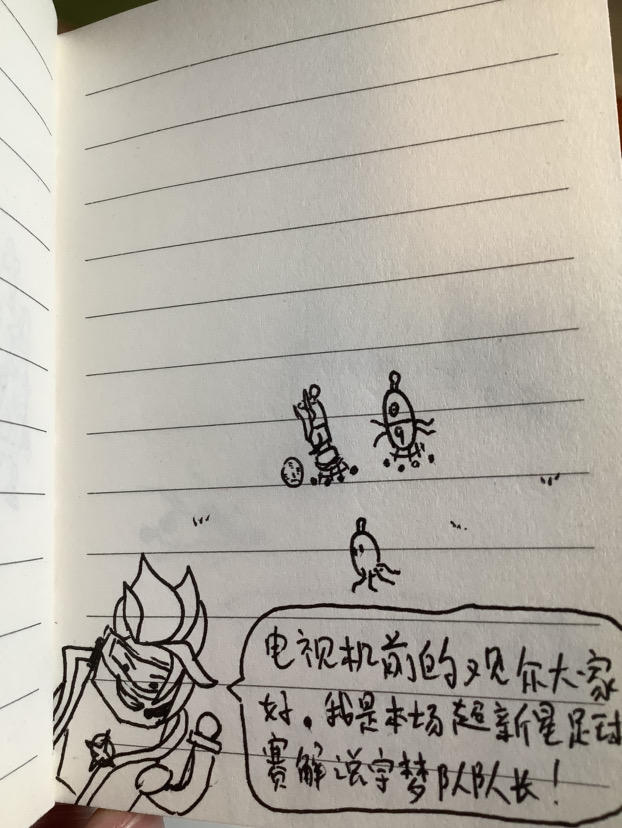 电视机前的观众大家
好。我是本场超新星足球
赛解说宇梦队队长！